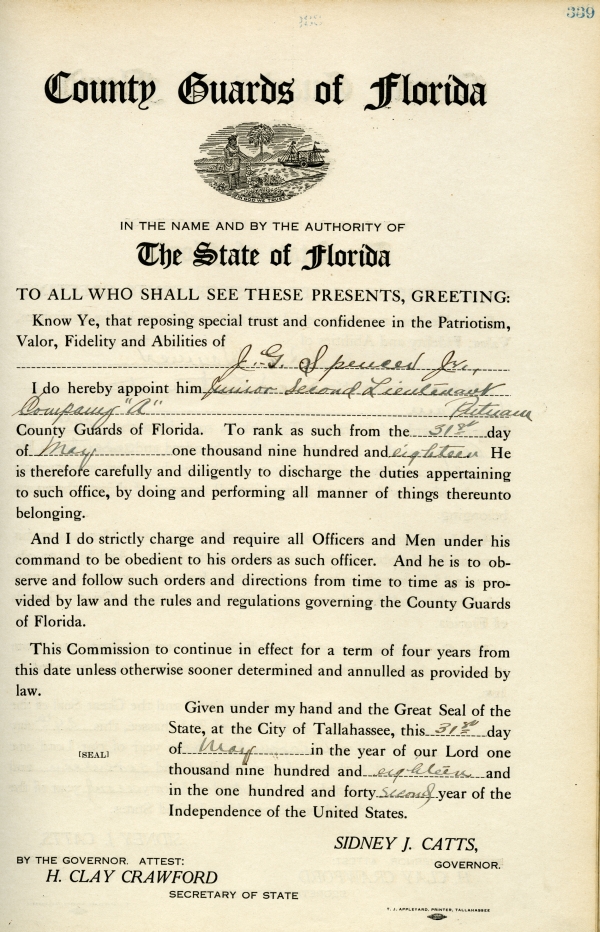 339
County Guards of Florida
IN GOD WE TRUST
IN THE NAME AND BY THE AUTHORITY OF
The State of Florida
TO ALL WHO SHALL SEE THESE PRESENTS, GREETING:
Know Ye, that reposing special trust and confidence in the Patriotism,
Valor, Fidelity and Abilities of
J. G. Spencer Jr.,
I do hereby appoint him Junior Second Lieutenant
Company "A" Putnam
County Guards of Florida. To rank as such from the 31st day
of May one thousand nine hundred and eighteen He
is therefore carefully and diligently to discharge the duties appertaining
to such office, by doing and performing all manner of things thereunto
belonging.
And I do strictly charge and require all Officers and Men under his
command to be obedient to his orders as such officer. And he is to ob-
serve and follow such orders and directions from time to time as is pro-
vided by law and the rules and regulations governing the County Guards
of Florida.
This Commission to continue in effect for a term of four years from
this date unless otherwise sooner determined and annulled as provided by
law.
Given under my hand and the Great Seal of the
State, at the City of Tallahassee, this 31st day
[SEAL] of May in the year of our Lord one
thousand nine hundred and eighteen and
in the one hundred and forty second year of the
Independence of the United States.
SIDNEY J. CATTS,
GOVERNOR.
BY THE GOVERNOR. ATTEST:
H. CLAY CRAWFORD
SECRETARY OF STATE
T. J. APPLEYARD, PRINTER, TALLAHASSEE